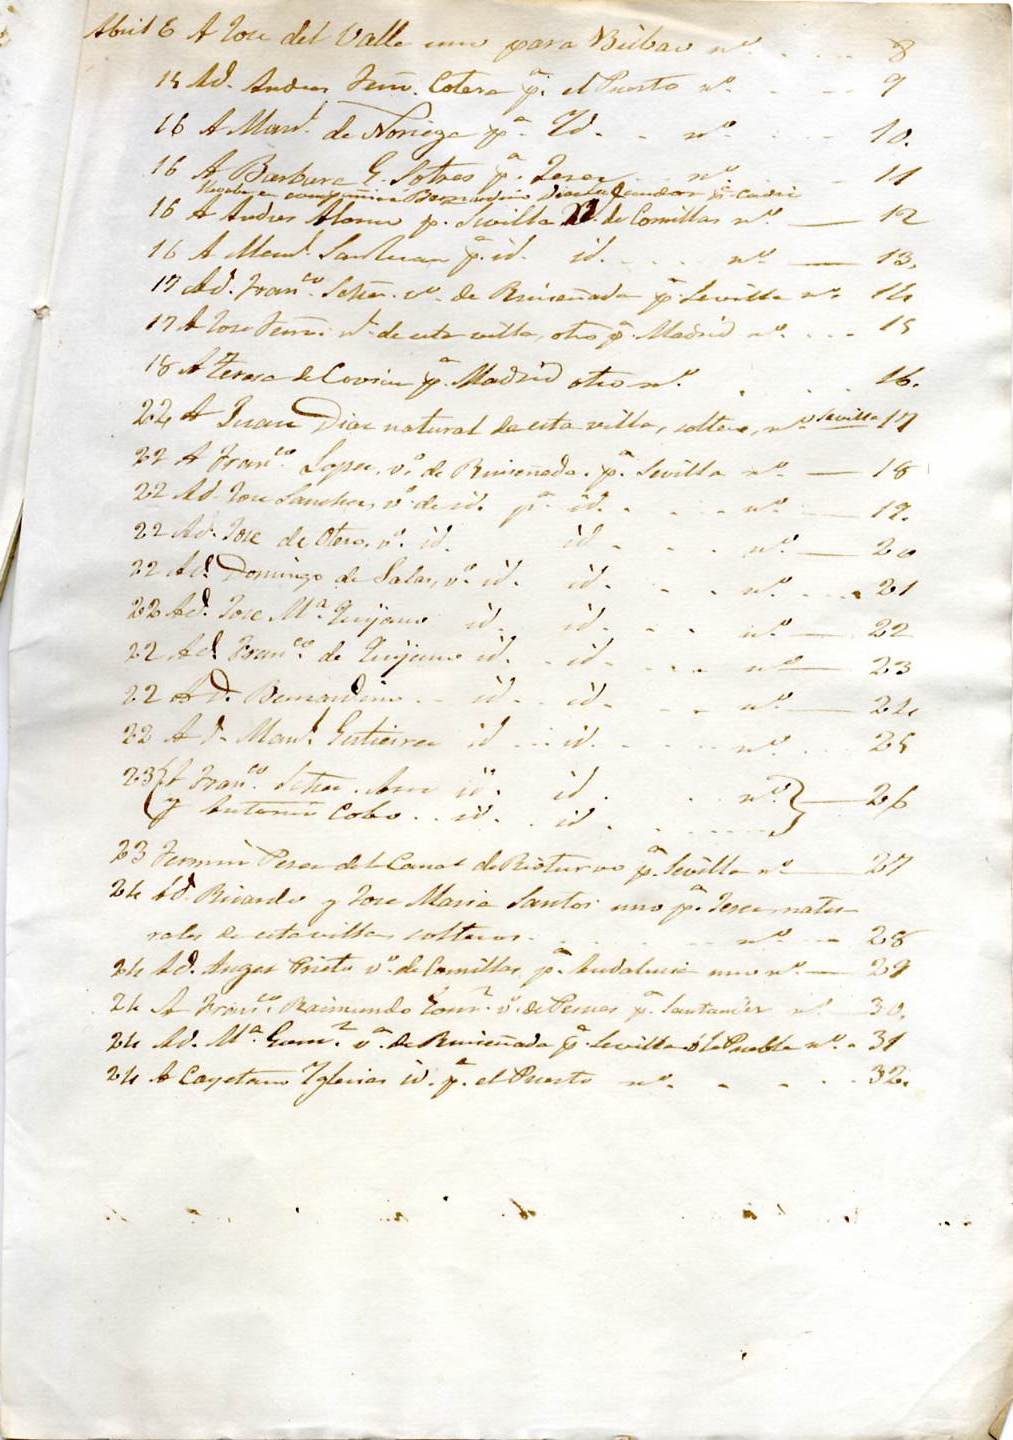 Abril 6 A Jose del Valle uno para Bilbao nº. 8
15 Ad. Andres Fern. Cotera pª. el Puerto nº. 9
16 A Manl. de Noriega pª Id. nº 10.
16 A Barbara G. Sotres pª Jerez nº. 11
en compañia Bernardino pª cadiz
16 A Andres Alonso p. Sevilla de Comillas nº 12
16 A Manl. Santuan pª. id. id. nº 13.
17 Ad. Franco. Schez. vº. de Ruiseñada pª. Sevilla nº 14
17 A Jose Fern. nl. de esta villa, otro pª. Madrid nº. 15
18 A Teresa de pª. Madrid otro nº. 16.
22 A Juan Diaz natural de esta villa, soltero, nº Sevilla 17
22 A Franco. Lopez, vº. de Ruiseñada. pª. Sevilla nº 18
22 Ad. Jose Sanchez, vº. de id. pª id. nº 19.
22 Ad. Jose de Otero, vº. id. id nº 20
22 Ad. Domingo de Salas, vº. id. id. nº. 21
22 Ad. Jose Mª Quijano id. id. nº 22
22 Ad. Franco de Quijano id. id. nº 23
22 Ad. Bernardino id. id. nº. 24
22 Ad. Manl. Gutierrez id id. nº. 25
23 A Franco. Schez. id. id. nº. 26
y Antonio Cobo. id. id.
23 Fermin Perez del Canal de Rioturvio pª. Sevilla nº 27
24 Ad. Ricardo y Jose Maria Santos uno pª. Jerez natu-
rales de esta villa solteros. nº. 28
24 Ad. Angel Prieto vº. de Comillas, pª. Andalucia uno nº. 29
24 A Franco Raimundo vº. de Perues pª. Santander nº. 30.
24 Ad. Mª. vª. de Ruiseñada pª. Sevilla ó la Puebla nº. 31
24 A Cayetano Yglesias id. pª. el Puerto nº. 32.